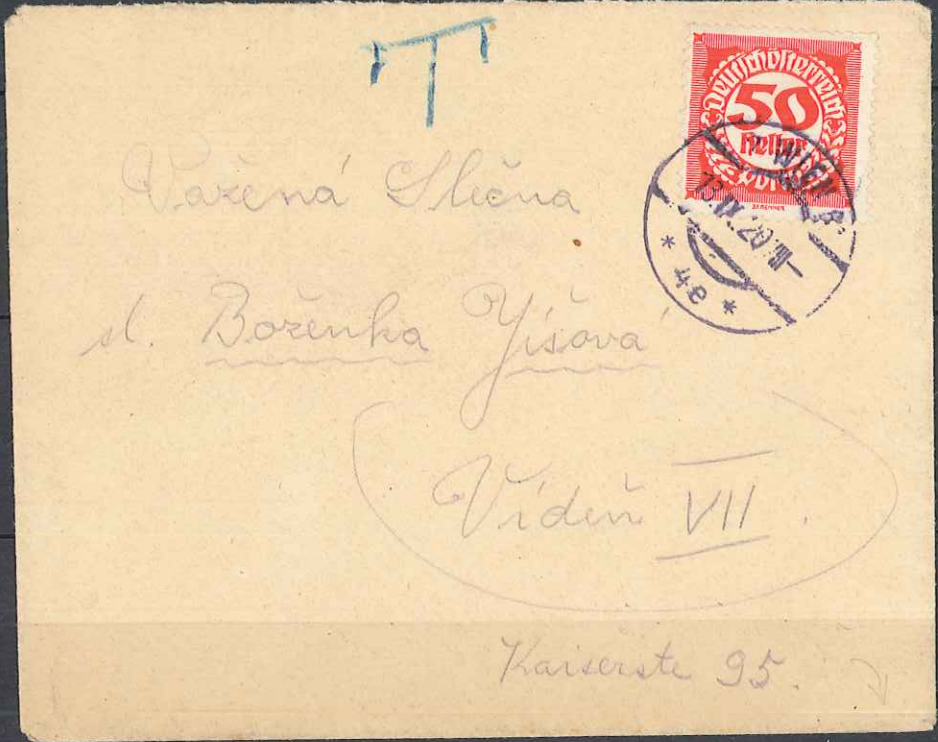 T
Deutschösterreich
50
Heller
Porto
WIEN
13.IX.20 VIII–
* 4e *
Važená Slečna
sl. Boženka Jíšová
Vídeň VII.
Kaiserste 95.